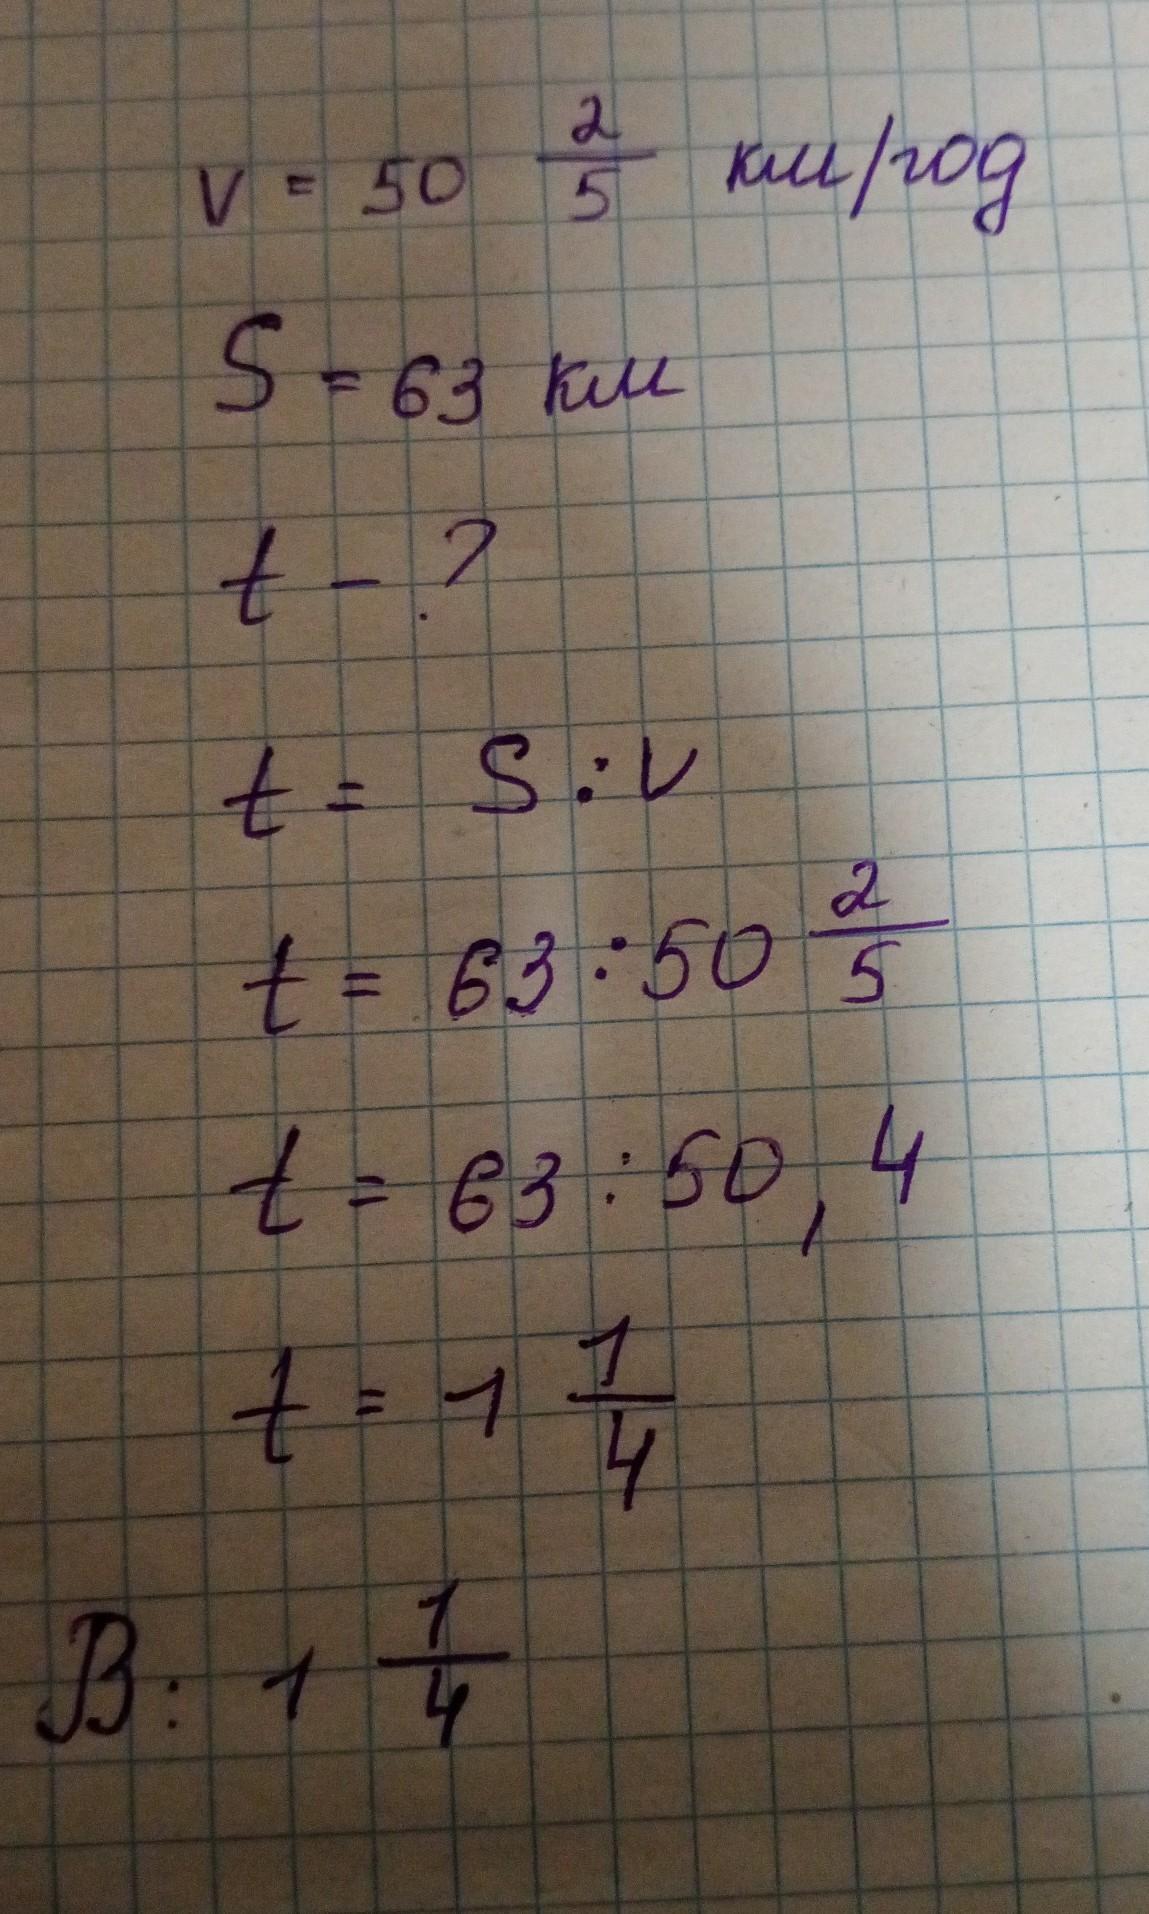 v = 50 2/5 км/год
S = 63 км
t - ?
t = S : v
t = 63 : 50 2/5
t = 63 : 50,4
t = 1 1/4
В: 1 1/4